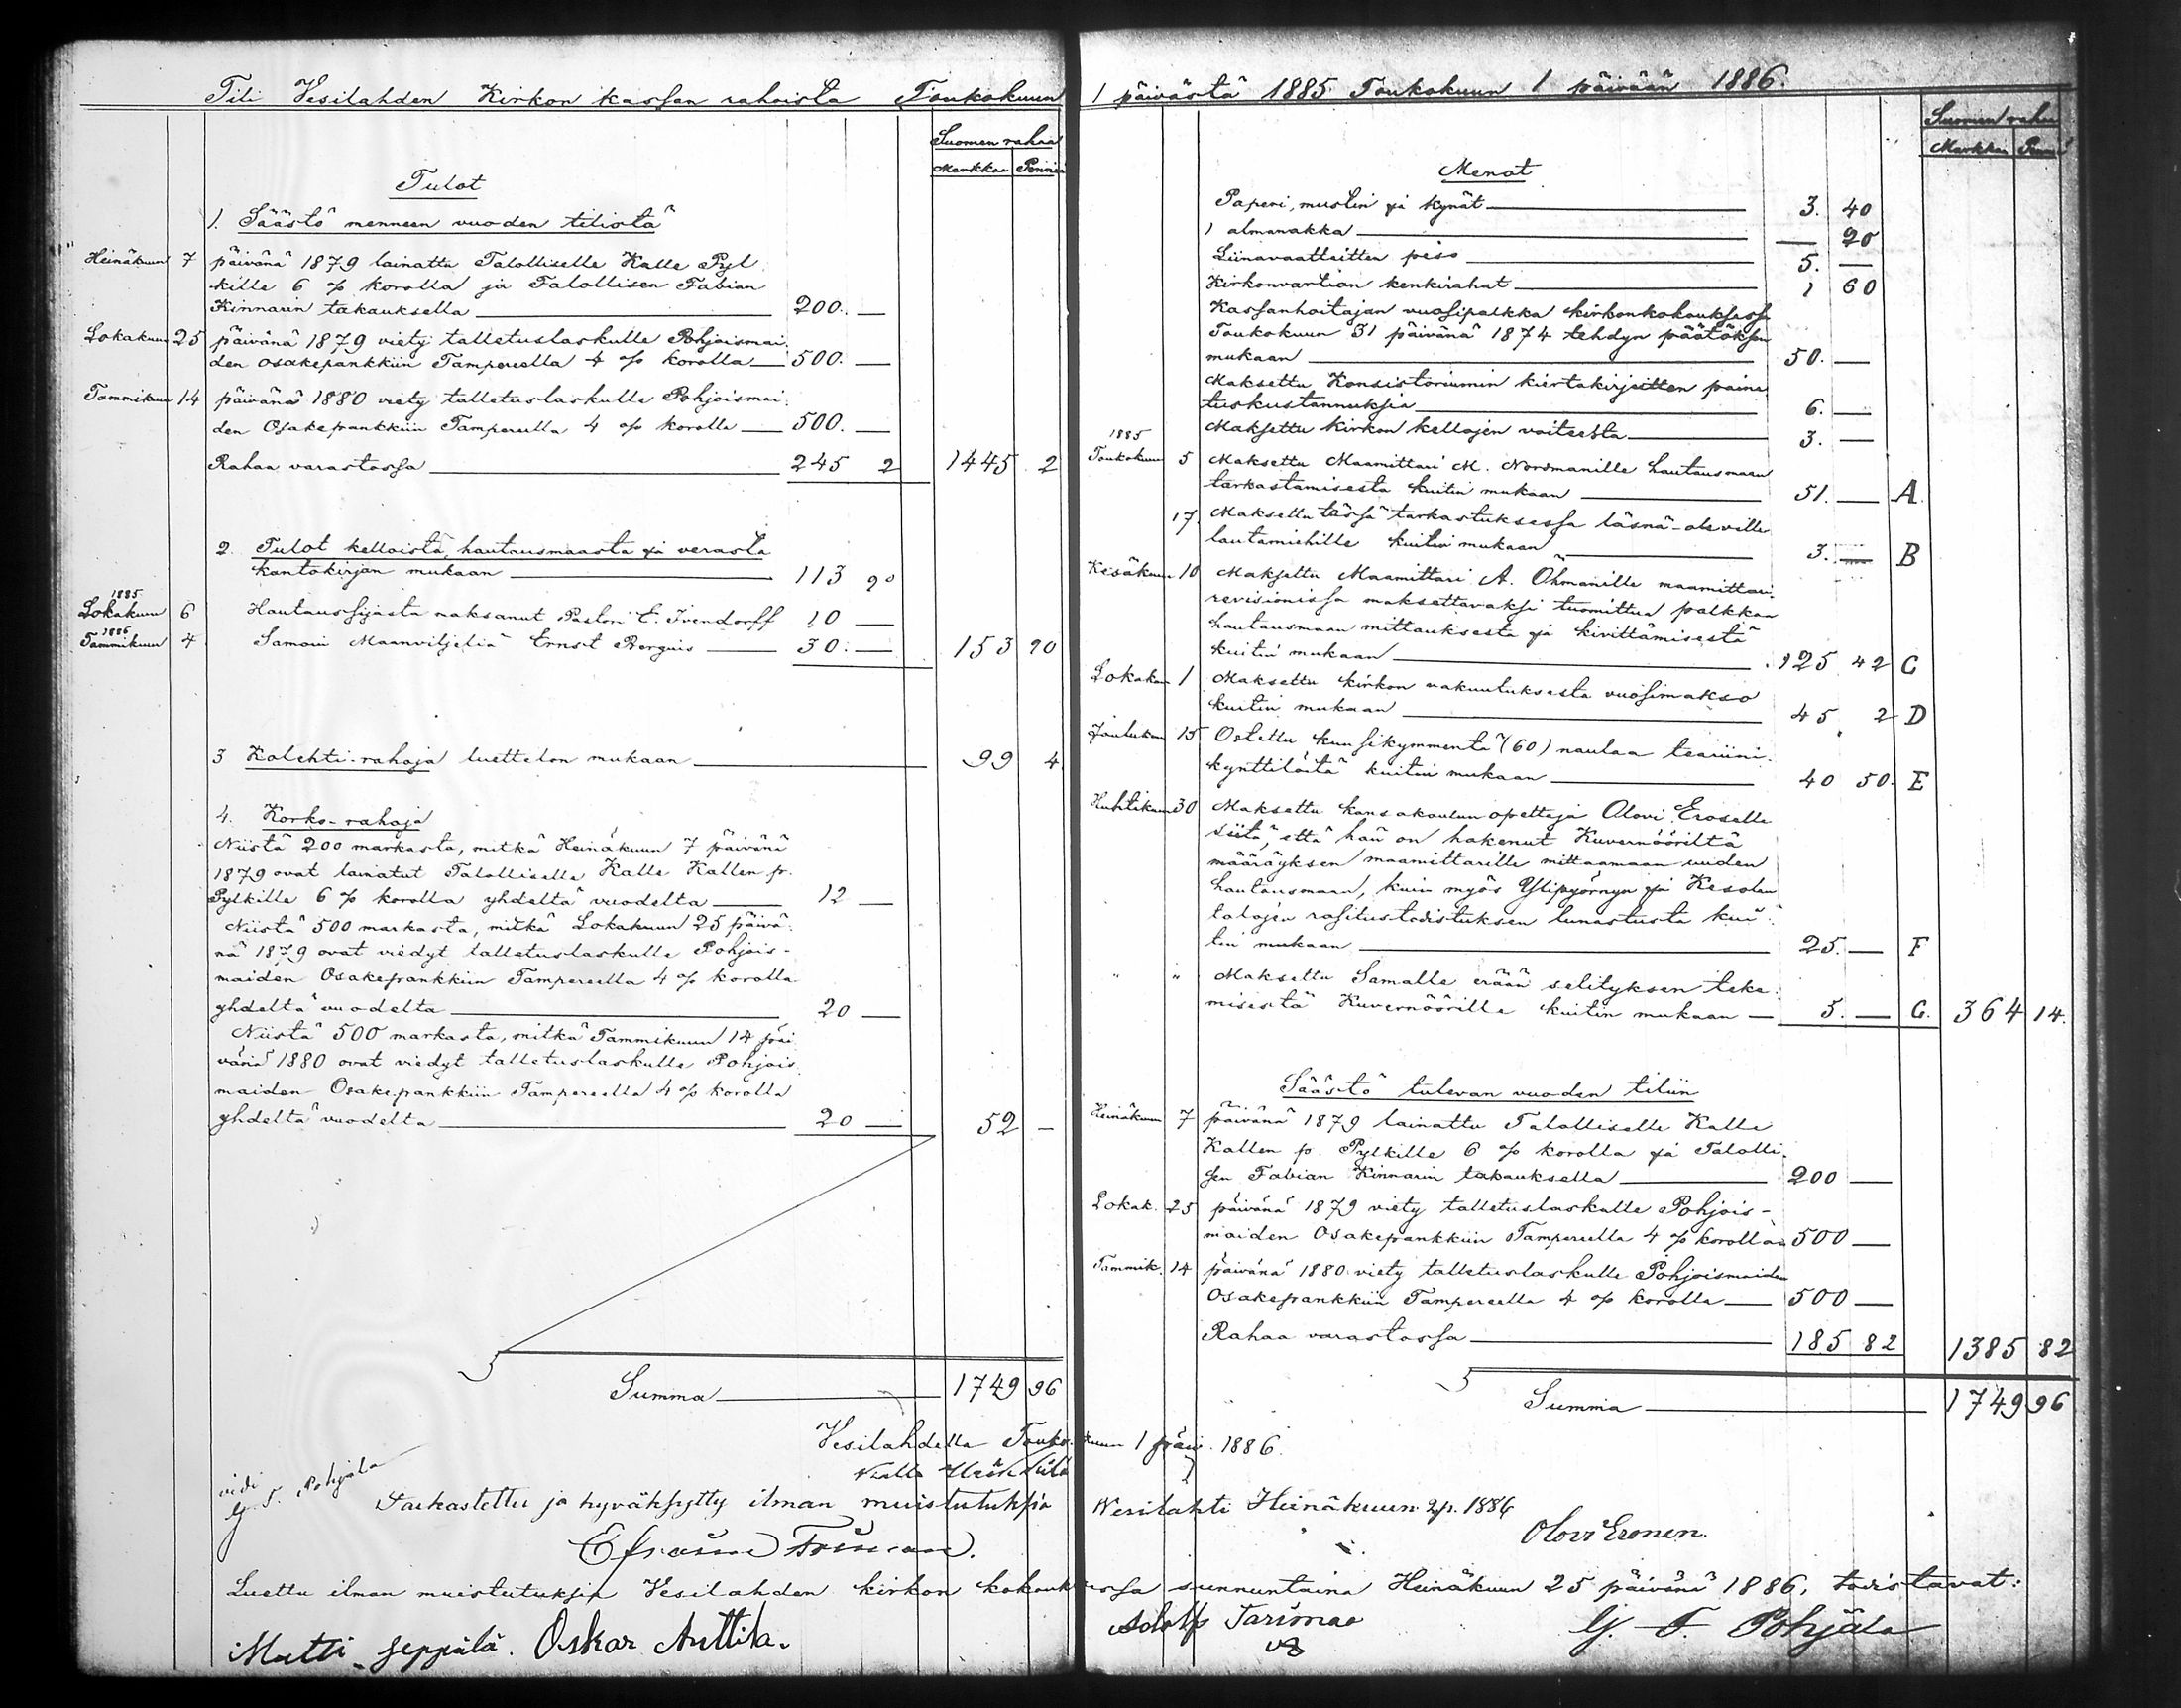 Tili Vesilahden Kirkon kassan rahoista Toukokuun 1 päivästä 1885 Toukokuun 1 päivään 1886.
Suomen rahaa
Markkaa Penniä
Tulot
1. Säästö menneen vuoden tilistä
Heinäkuun 7 päivänä 1879 lainattu Talolliselle Kalle Pyl
kille 6 % korolla ja Talollisen Fabian
Kinnarin takauksella 200. —
Lokakuun 25 päivänä 1879 viety talletuslaskulle Pohjoismai
den osakepankkiin Tampereella 4 % korolla 500. —
Tammikuun 14 päivänä 1880 viety talletuslaskulle Pohjoismai
den Osakepankkiin Tampereella 4 % korolla 500. —
Rahaa varastossa 245 2 1445 2
2. Tulot kelloista, hautausmaasta ja verasta
kantokirjan mukaan 113 90
1885
Lokakuun 6 Hautaussijasta maksanut Pastori E. Ivendorff 10 —
1886
Tammikuun 4 Samoin Maanviljeliä Ernst Bergius 30. — 153 90
3 Kolehti-rahoja luettelon mukaan 99 4
4. Korko-rahoja
Niistä 200 markasta, mitkä Heinäkuun 7 päivänä
1879 ovat lainatut Talolliselle Kalle Kallen p.
Pylkille 6 % korolla yhdeltä vuodelta 12 —
Niistä 500 markasta, mitkä Lokakuun 25 päivä
nä 1879 ovat viedyt talletuslaskulle Pohjois-
maiden Osakepankkiin Tampereella 4 % korolla
yhdeltä vuodelta 20 —
Niistä 500 markasta, mitkä Tammikuun 14 päi
vänä 1880 ovat viedyt talletuslaskulle Pohjois
maiden Osakepankkiin Tampereella 4 % korolla
yhdeltä vuodelta 20 — 52 —
Summa 1749 96
Suomen rahaa
Markkaa Penniä
Menot
Paperi, mustin ja kynät 3. 40
1 almanakka — 20
Liinavaatteitten peso 5. —
Kirkonvartian kenkirahat 1 60
Kassanhoitajan vuosipalkka kirkonkokouksessa
Toukokuun 31 päivänä 1874 tehdyn päätöksen
mukaan 50. —
Maksettu Konsistoriumin kiertokirjeitten paina
tuskustannuksia 6. —
Maksettu kirkon kellojen voiteesta 3. —
1885
Toukokuun 5 Maksettu Maamittari M. Nordmanille hautausmaan
tarkastamisesta kuitin mukaan 51. — A.
17. Maksettu tässä tarkastuksessa läsnä-oleville
lautamiehille kuitin mukaan 3. — B
Kesäkuun 10 Maksettu Maamittari A. Öhmanille maamittari
revisionissa maksettavaksi tuomittua palkkaa
hautausmaan mittauksesta ja kivittämisestä
kuitin mukaan 125 42 C
Lokakuun 1 Maksettu kirkon vakuutuksesta vuosimakso
kuitin mukaan 45 2 D
Joulukuun 15 Ostettu kuusikymmentä (60) naulaa teariini.
kynttilöitä kuitin mukaan 40 50. E
Huhtikuun 30 Maksettu kansakoulun opettaja Olovi Eroselle
siitä, että hän on hakenut Kuvernööriltä
määräyksen maamittarille mittaamaan uuden
hautausmaan, kuin myös Ylipyörnyn ja Kesolan
talojen rasitustodistuksen lunastusta kui
tin mukaan 25. — F
" " Maksettu Samalle erään selityksen teke
misestä Kuvernöörille kuitin mukaan 5. — G. 364 14.
Säästö tulevan vuoden tiliin
Heinäkuun 7 päivänä 1879 lainattu Talolliselle Kalle
Kallen p. Pylkille 6 % korolla ja Talolli.
sen Fabian Kinnarin takauksella 200 —
Lokak. 25 päivänä 1879 viety talletuslaskulle Pohjois-
maiden Osakepankkiin Tampereella 4 % korolla 500 —
Tammik. 14 päivänä 1880 viety talletuslaskulle Pohjoismaiden
Osakepankkiin Tampereella 4 % korolla 500 —
Rahaa varastossa 185 82 1385 82
Summa 1749 96
Vesilahdella Toukokuun 1 päiv. 1886.
Kalle
vidi
G. F. Pohjala
Tarkastettu ja hyväksytty ilman muistutuksia Wesilahti Heinäkuun 2 p. 1886
Olovi Eronen.
Luettu ilman muistutuksia Vesilahden kirkon kokouksessa sunnuntaina Heinäkuun 25 päivänä 1886, todistavat:
Matti Seppälä. Oskar Anttila. Adolf G. F. Pohjala